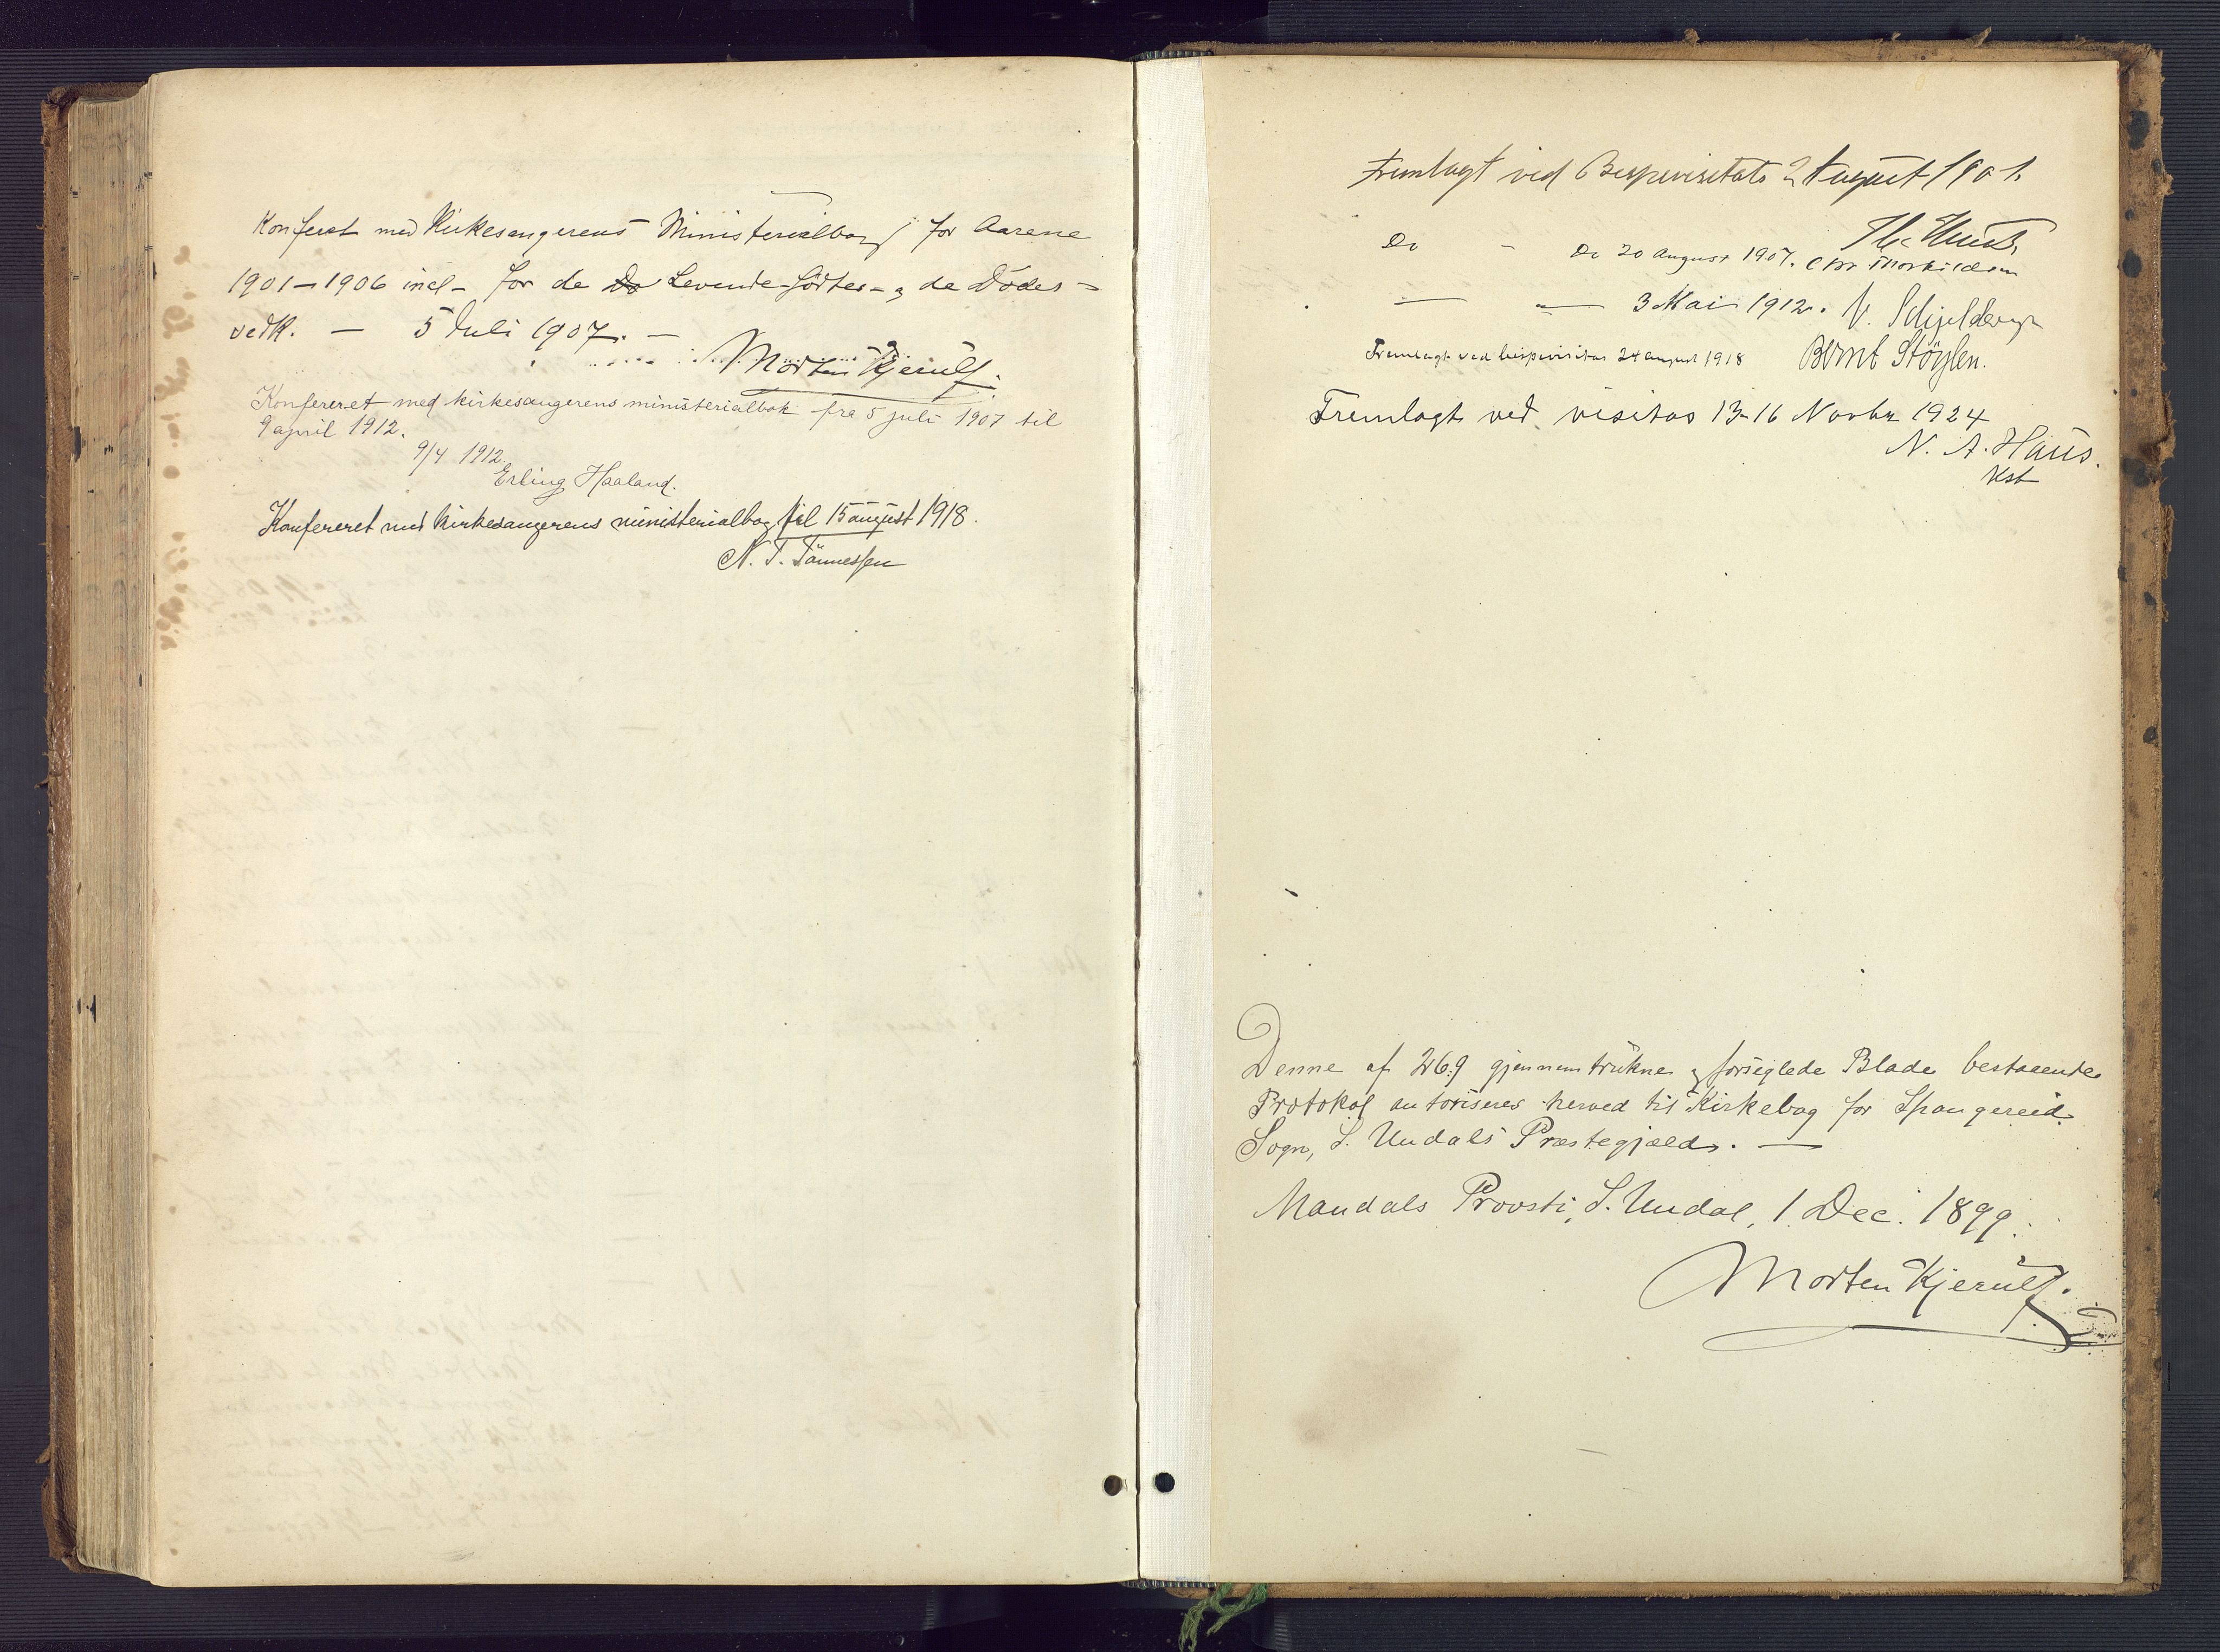 Konferet med Kirkesangerens Ministerialbog for Aarene
1901–1906 incl – for de Levende fødtes – og de Dødes –
vedk. — 5 Juli 1907. —
Morten Kjerulf.
Konfereret med kirkesangerens ministerialbok fra 5 juli 1907 til
9 april 1912.
9/4 1912.
Erling Haaland.
Konfereret med kirkesangerens ministerialbog til 15 august 1918.
N. T. Tønnessen
Fremlagt ved Bispevisitats 2 August 1901.
Do – Do 20 August 1907. Chr Thorkildsen
— „ — 3 Mai 1912. V. Schjelderup
Fremlagt ved bispevisitas 24 august 1918 Bernt Støylen.
Fremlagt ved visitas 13-16 Novbr 1924
N. A. Haus.
Kst
Denne af 269 gjennemtrukne og forseglede Blade bestaaende
Protokol autoriseres herved til Kirkebog for Spangereid
Sogn, S. Undals Præstegjæld. —
Mandals Provsti, S. Undal, 1 Dec. 1899.
Morten Kjerulf.